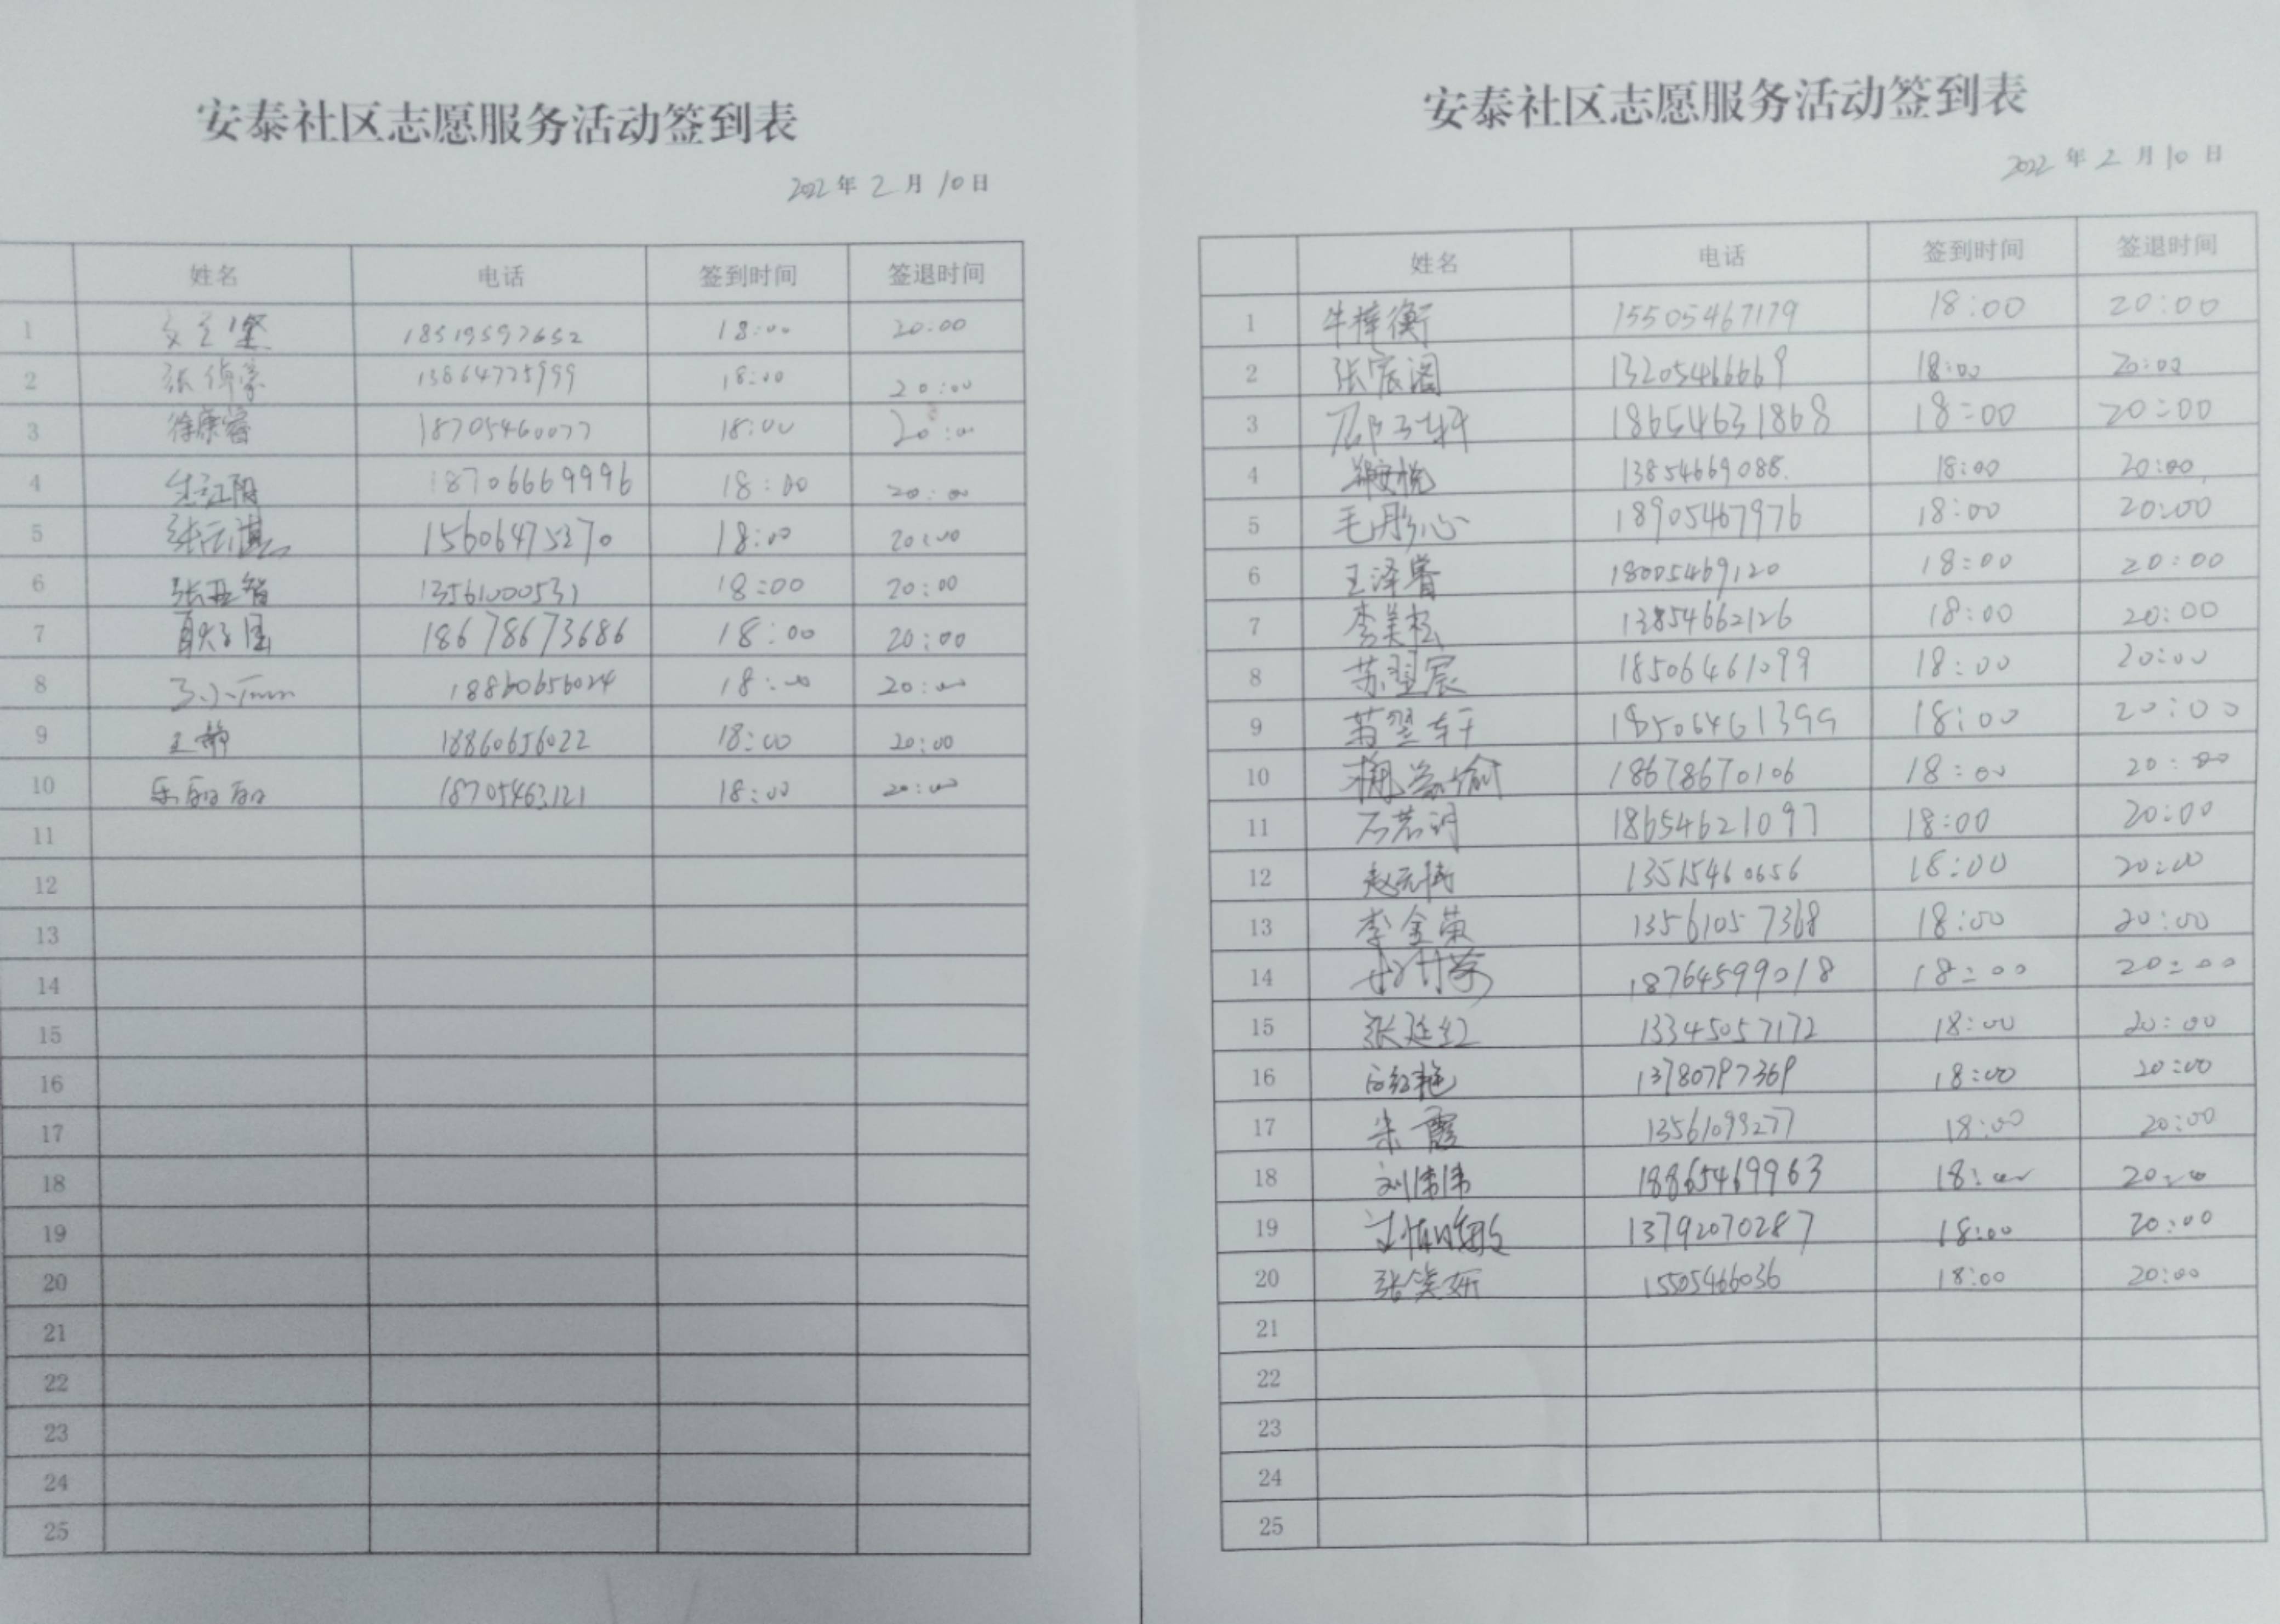 安泰社区志愿服务活动签到表
2022年2月10日
姓名 电话 签到时间 签退时间
1 18519597652 18:00 20:00
2 13864725999 18:00 20:00
3 徐康睿 18705460077 18:00 20:00
4 18706669996 18:00 20:00
5 15606475270 18:00 20:00
6 张亚智 13561000531 18:00 20:00
7 18678673686 18:00 20:00
8 18860656024 18:00 20:00
9 王静 18860656022 18:00 20:00
10 18705463121 18:00 20:00
11
12
13
14
15
16
17
18
19
20
21
22
23
24
25
安泰社区志愿服务活动签到表
2022年2月10日
姓名 电话 签到时间 签退时间
1 牛梓衡 15505467179 18:00 20:00
2 张宸阁 13205466669 18:00 20:00
3 18654631868 18:00 20:00
4 13854669088 18:00 20:00
5 毛彤心 18905467976 18:00 20:00
6 王泽睿 18005469120 18:00 20:00
7 李美松 13854662126 18:00 20:00
8 苏翌宸 18506461099 18:00 20:00
9 苏翌轩 18506461399 18:00 20:00
10 18678670106 18:00 20:00
11 石若诩 18654621097 18:00 20:00
12 13515460656 18:00 20:00
13 李金荣 13561057368 18:00 20:00
14 18764599018 18:00 20:00
15 张廷红 13345057172 18:00 20:00
16 13780797369 18:00 20:00
17 宋霞 13561099277 18:00 20:00
18 刘伟伟 18865469963 18:00 20:00
19 13792070287 18:00 20:00
20 张笑妍 15505466036 18:00 20:00
21
22
23
24
25